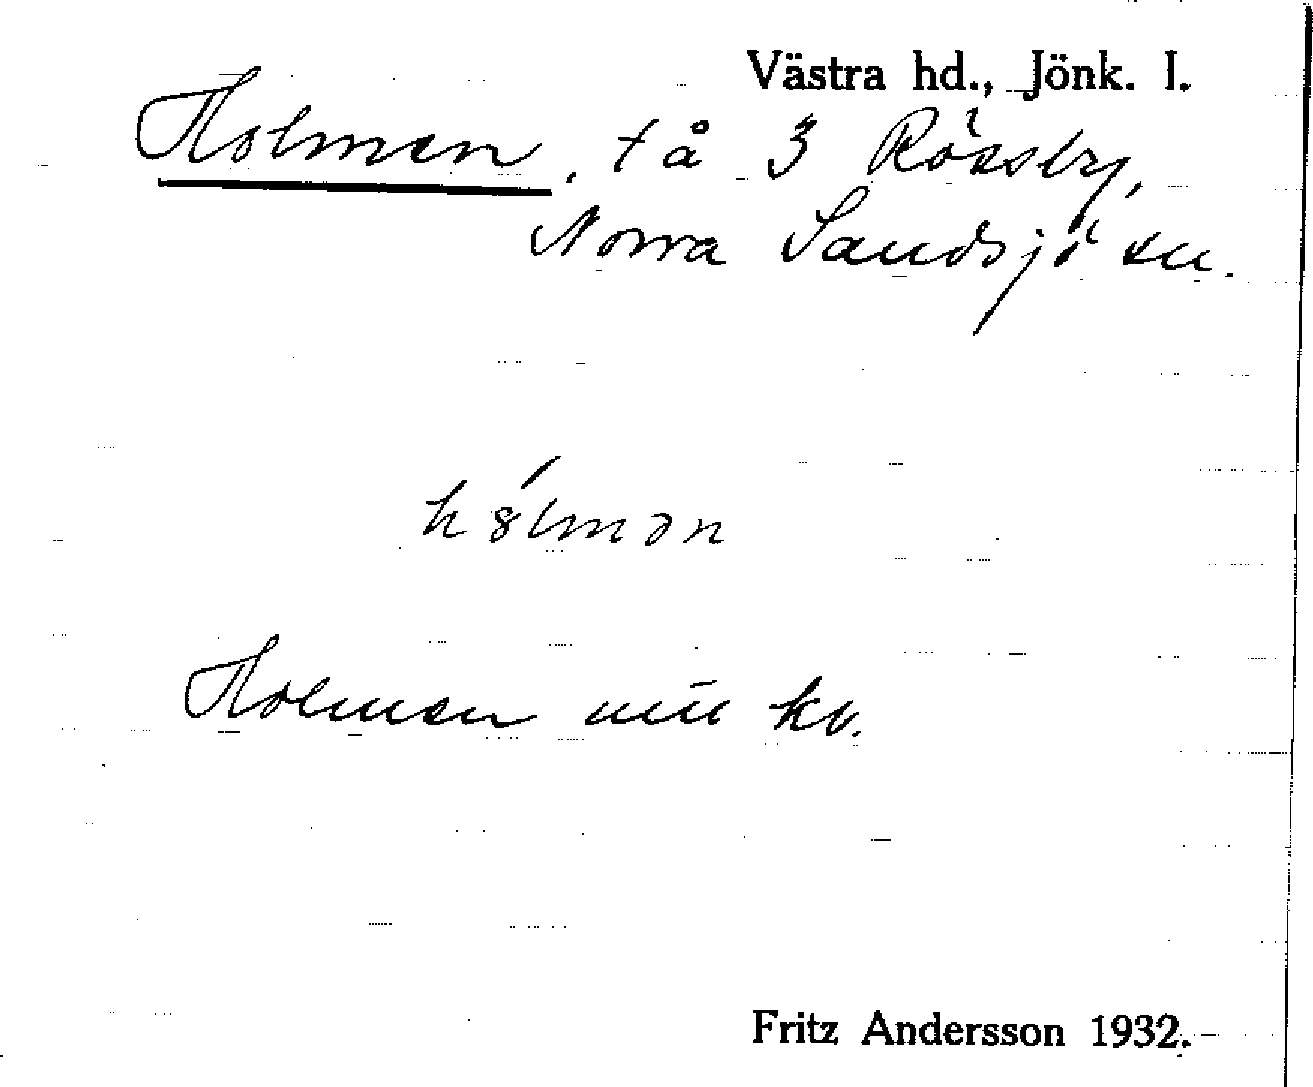 Västra hd., Jönk. l.
Holmen, t å 3 Rössby,
Norra Sandsjö sn.
hólmən
Holmen kv.
Fritz Andersson 1932.